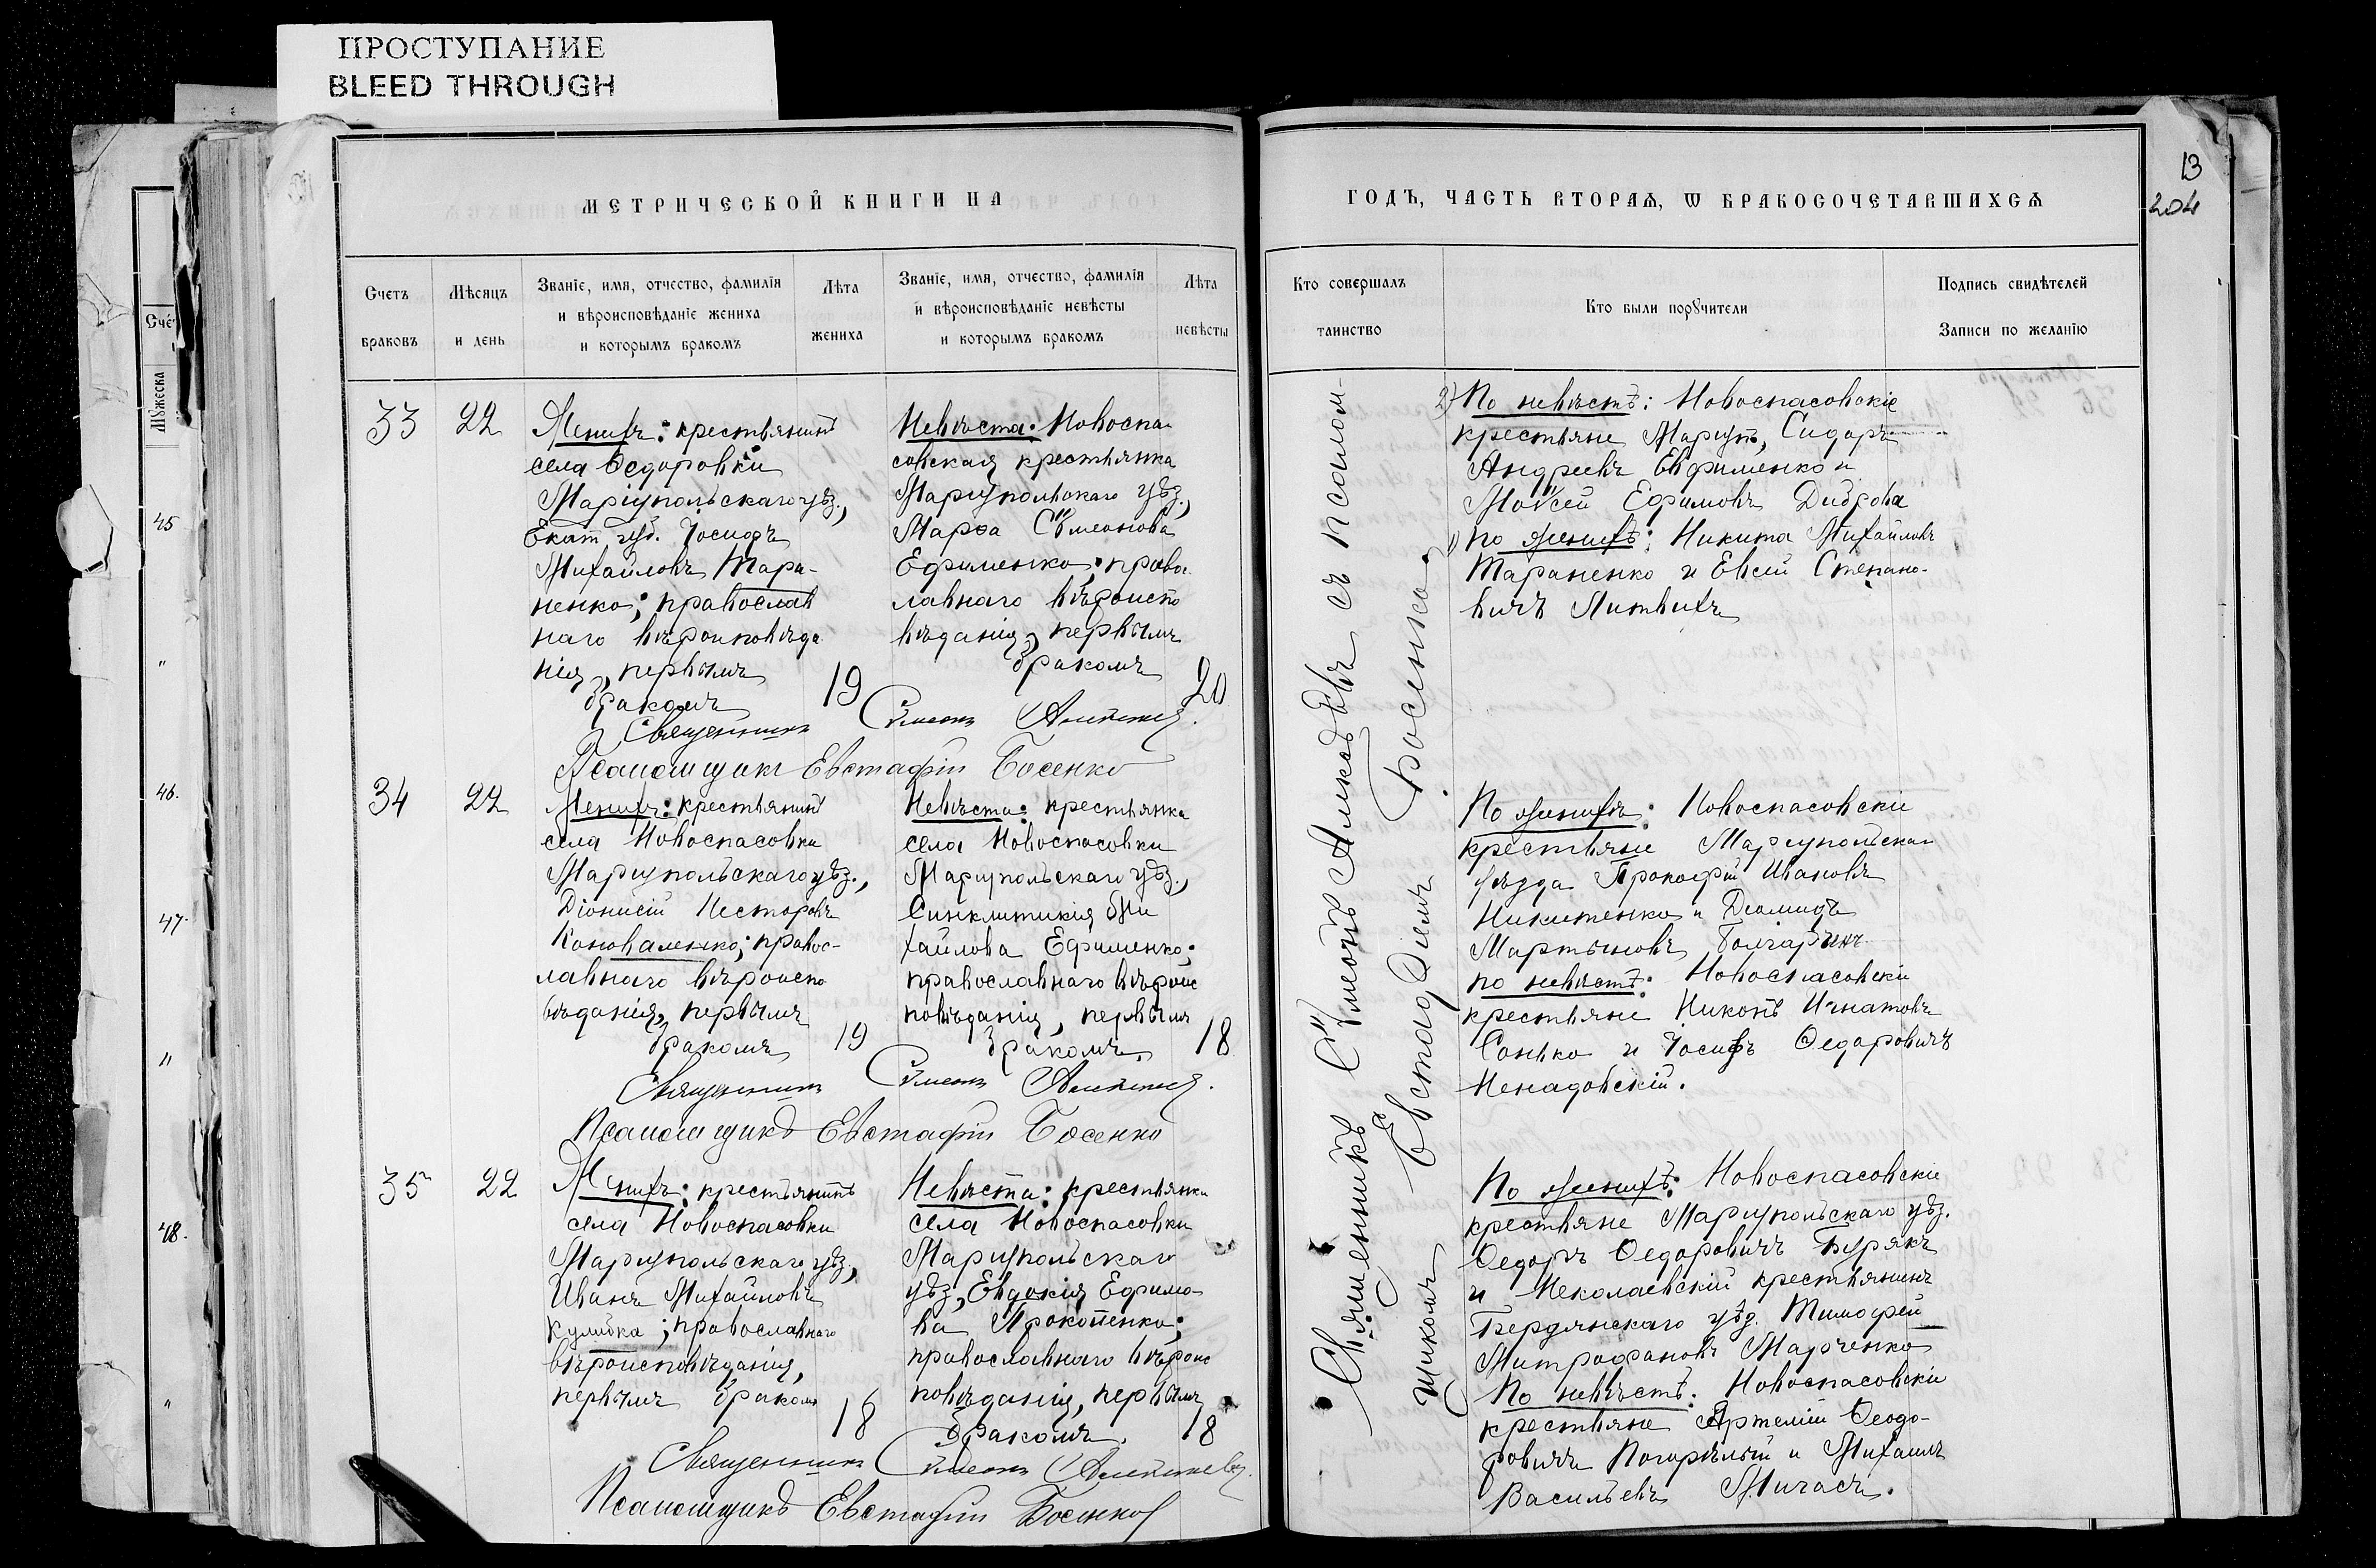 ПРОСТУПАНИЕ
BLEED THROUGH
МЕТРИЧЕСКОЙ КНИГИ НА
Счетъ браковъ
Мѣсяцъ и день
Званіе, имя, отчество, фамилія
и вѣроисповѣданіе жениха
и которымъ бракомъ
Лѣта жениха
Званіе, имя, отчество, фамилія
и вѣроисповѣданіе невѣсты
и которымъ бракомъ
Лѣта невѣсты
33
22
Женихъ: крестьянинъ
села Ѳедоровки
Маріупольскаго уѣз.,
Екат. губ. Іосифъ
Михайловъ Тара-
ненко; православ
наго вѣроиповѣда
нія, первымъ
бракомъ
19
Невѣста: Новоспа-
совская крестьянка
Маріупольскаго уѣз.,
Марѳа Сѵмеонова
Ефименко; право
лавнаго вѣроиспо
вѣданія, первымъ
бракомъ
20
Священникъ Сѵмеонъ
Псаломщикъ Евстафій Босенко
34
22
Женихъ: крестьянинъ
села Новоспасовки
Маріупольскаго уѣз.,
Діонисій Несторовъ
Коноваленко; правос-
лавнаго вѣроиспо
вѣданія, первымъ
бракомъ
19
Невѣста: крестьянка
села Новоспасовки
Маріупольскаго уѣз.,
Синклитикія Ми
хайлова Ефименко;
православнаго вѣроис
повѣданія, первымъ
бракомъ.
18
Священникъ Сѵмеонъ
Псаломщикъ Евстафій Босенко
35
22
Женихъ: крестьянинъ
села Новоспасовки
Маріупольскаго уѣз.,
Иванъ Михайловъ
Кулибка; православнаго
вѣроисповѣданія,
первымъ бракомъ
18
Невѣста: крестьянка
села Новоспасовки
Маріупольскаго
уѣз., Евдокія Ефимо
ва Прокопенко;
православнаго вѣроис
повѣданія, первымъ
бракомъ.
18
Священникъ Сѵмеонъ
Псаломщикъ Евстафій Босенко
ГОДЪ, ЧАСТЬ ВТОРАѦ, Ѡ БРАКОСОЧЕТАВШИХСѦ
13
204
Кто совершалъ
таинство
Кто были порꙋчители
Подпись свидѣтелей
Записи по желанію
Священникъ Сѵмеонъ съ псалом-
щикомъ Евстафіемъ Босенко.
2) По невѣстѣ: Новоспасовскіе
крестьяне Маріуп., Сидоръ
Андреевъ Ефименко и
Моѵсей Ефимовъ Диброва
1) по женихѣ: Никита Михайловъ
Тараненко и Евсей Степано-
вичъ Литвихъ
По женихѣ: Новоспасовскіе
крестьяне Маріупольскаго
уѣзда Прокофій Ивановъ
Никитенко и Діомидъ
Мартыновъ Болгаринъ
по невѣстѣ: Новоспасовскіе
крестьяне Никонъ Игнатовъ
Сонько и Іосифъ Ѳедоровичъ
Ненадовскій.
По женихѣ: Новоспасовскіе
крестьяне Маріупольскаго уѣз.
Ѳедоръ Ѳедоровичъ Бурякъ
и Неколаевскій крестьянинъ
Бердянскаго уѣзд. Тимофей
Митрофановъ Марченко
По невѣстѣ: Новоспасовскіе
крестьяне Артемій Ѳеодо-
ровичъ Погорѣлый и Михаилъ
Васильевъ Мичасъ.
Мꙋжеска
45
"
46.
47.
"
48.
"